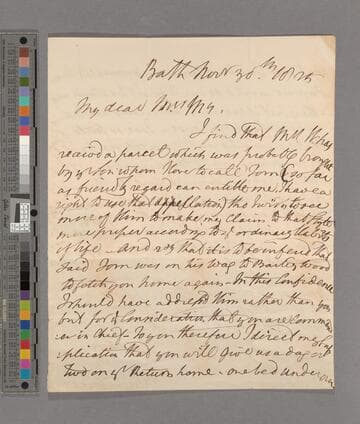 Bath Novr 30th 1825
My dear Miss My.
I find that Mr W has
received a parcel which was probably brought
by yr Son whom I love to call Tom (so far
as friendly regard can entitle me, I have a
right to use that appellation) tho' I wish to see
more of Him to make my Claim to that style
more proper according to ye ordinary
of life — and as that it is to be inferred that
said Tom was on his way to Barley wood
to fetch you home again — In this Confidence
I should have addressed Him rather than you
but for ye Consideration that you are Comman
er in Chief. To you therefore I direct my ap
plication that you will give us a day or
two on yr Return home — one bed under our